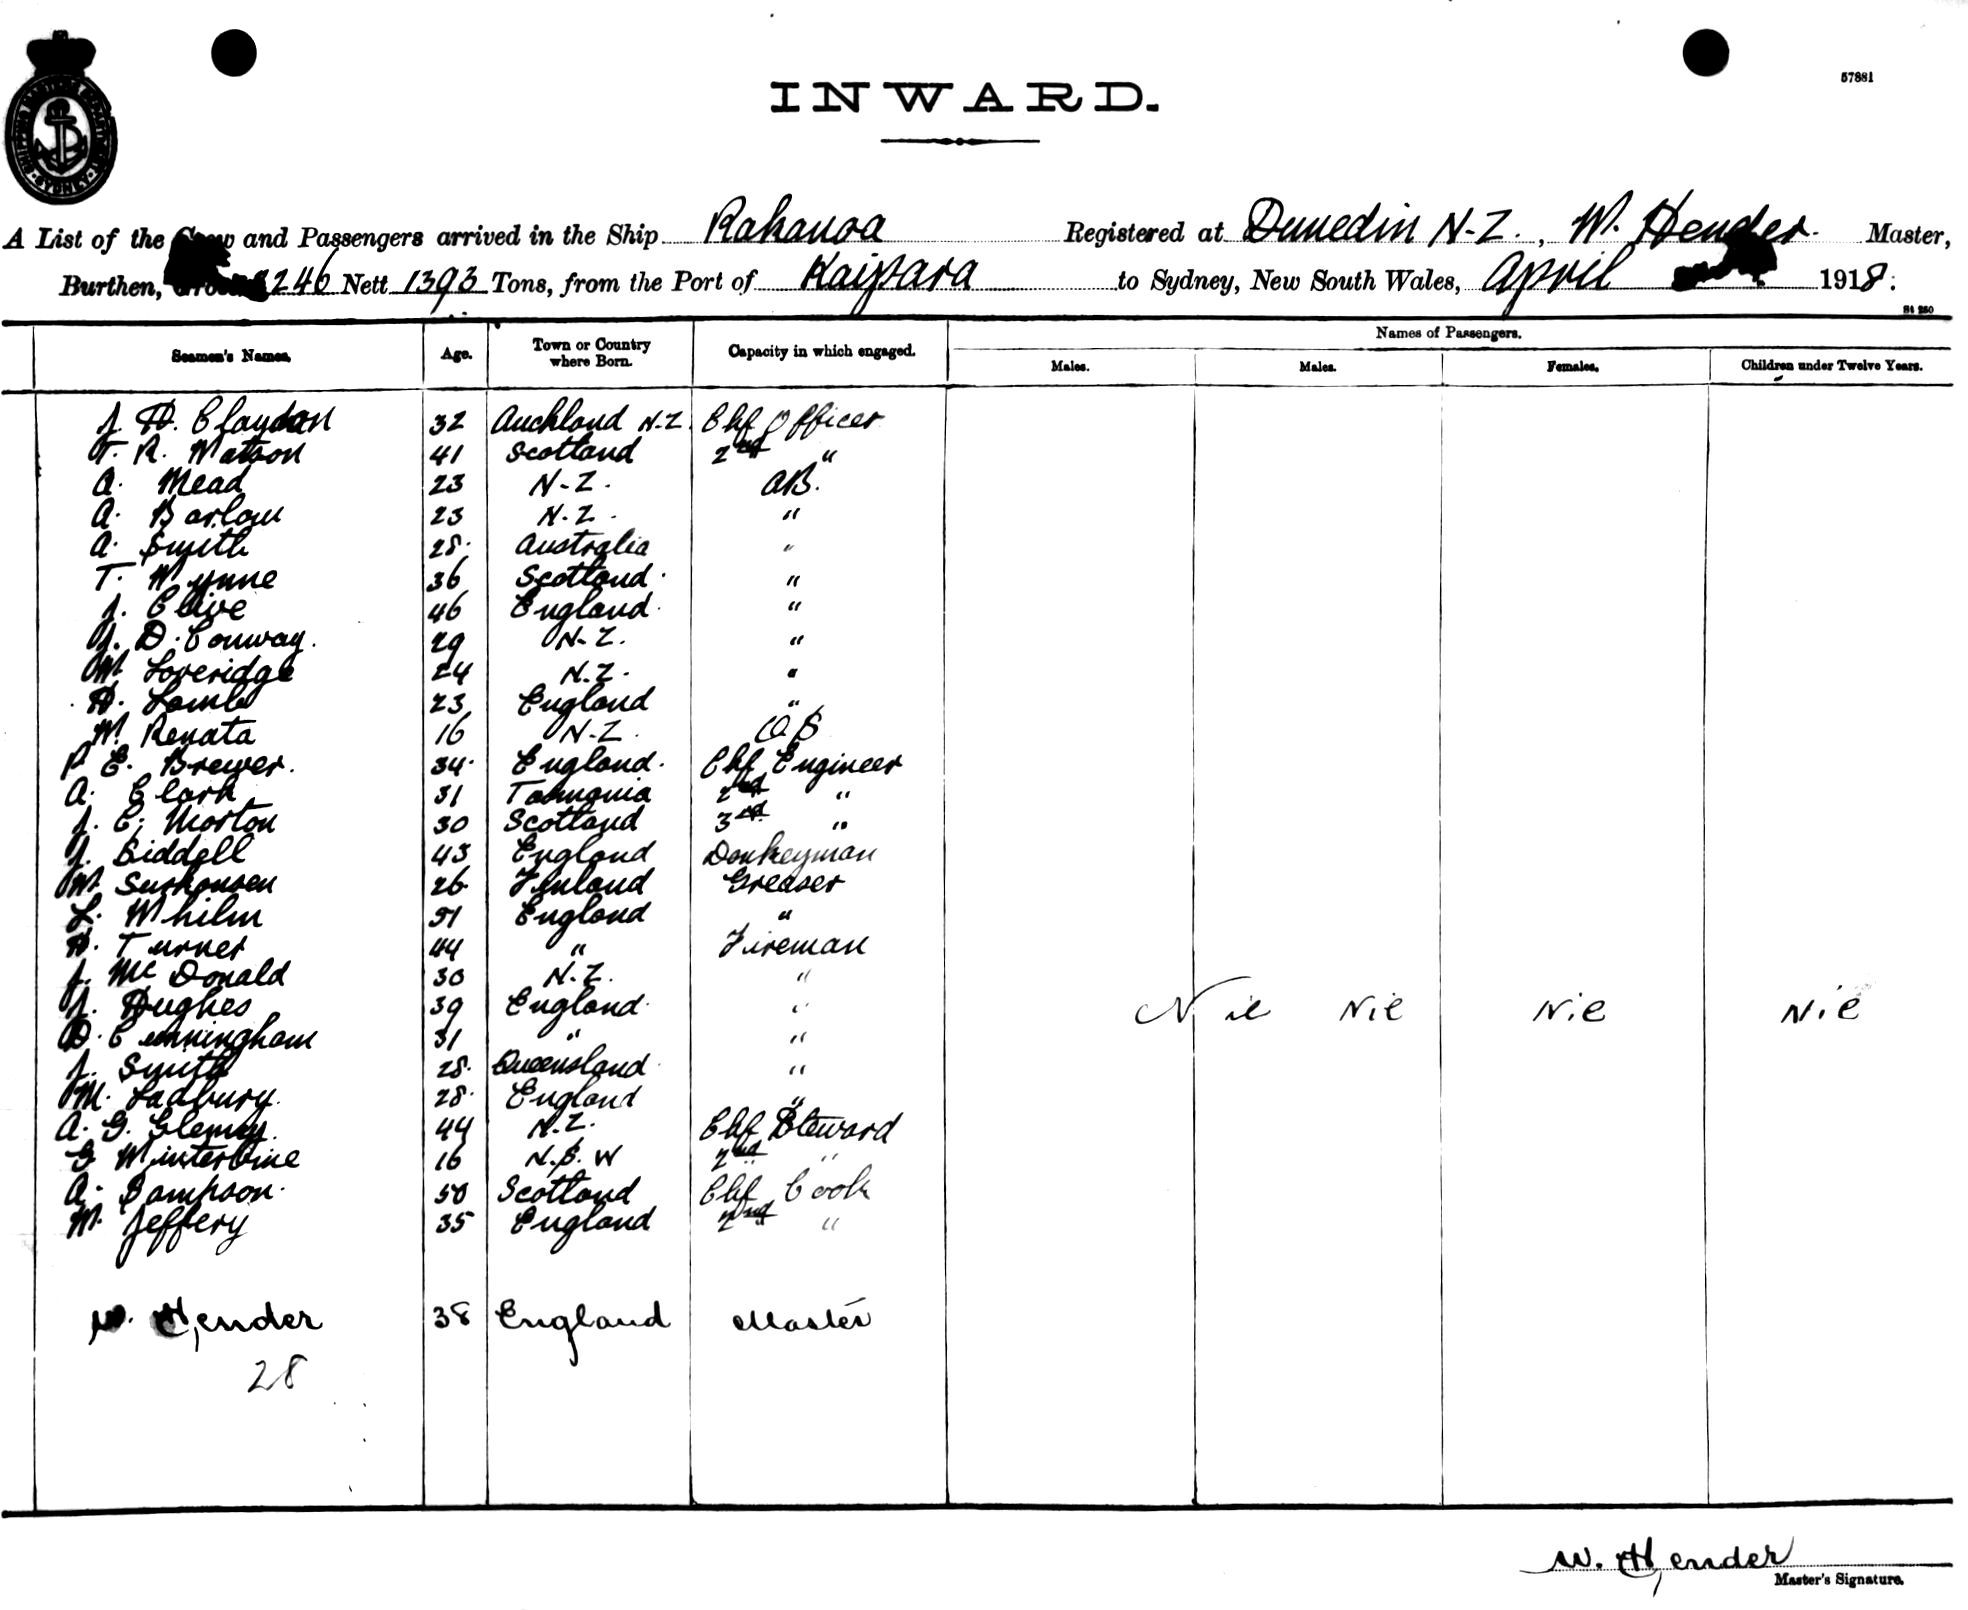 57881
INWARD.
A List of the Crew and Passengers arrived in the Ship Rakanoa Registered at Dunedin N-Z., W. Hender. Master,
Burthen, 2246 Nett 1393 Tons, from the Port of Kaipara to Sydney, New South Wales, April 1918.
St 250
Seamen's Names. Age. Town or Country where Born. Capacity in which engaged. Names of Passengers.
Males. Males. Females. Children under Twelve Years.
J. H. Claydon 32 Auckland N.Z. Chf Officer
T. R. Watson 41 Scotland 2nd "
A. Mead 23 N-Z. AB.
A. Barlow 23 N.Z. "
A. Smith 28. Australia "
T. Wynne 36 Scotland. "
J. Clive 46 England. "
J. D. Conway. 29 N-Z. "
W. Loveridge 24 N.Z. "
H. Lamb 23 England "
W. Renata 16 N-Z. OS
P. E. Brewer. 34. England. Chf Engineer
A. Clark 31 Tasmania 2nd "
J. C. Morton 30 Scotland 3rd "
J. Siddell 43 England Donkeyman
W. 26 Finland Greaser
L. Whilm 51 England "
H. Turner 44 " Fireman
J. McDonald 30 N.Z. "
J. Hughes 39 England. "
D. Cunningham 31 " "
J. Smith 28. Queensland. "
M. Ladbury. 28. England "
A. G. 44 N.Z. Chf Steward
G Winterbine 16 N.S.W 2nd "
A. Sampson. 50 Scotland Chf Cook
W. Jeffery 35 England 2nd "
Nil Nil Nil Nil
W. Hender 38 England Master
28
W. Hender
Master's Signature.